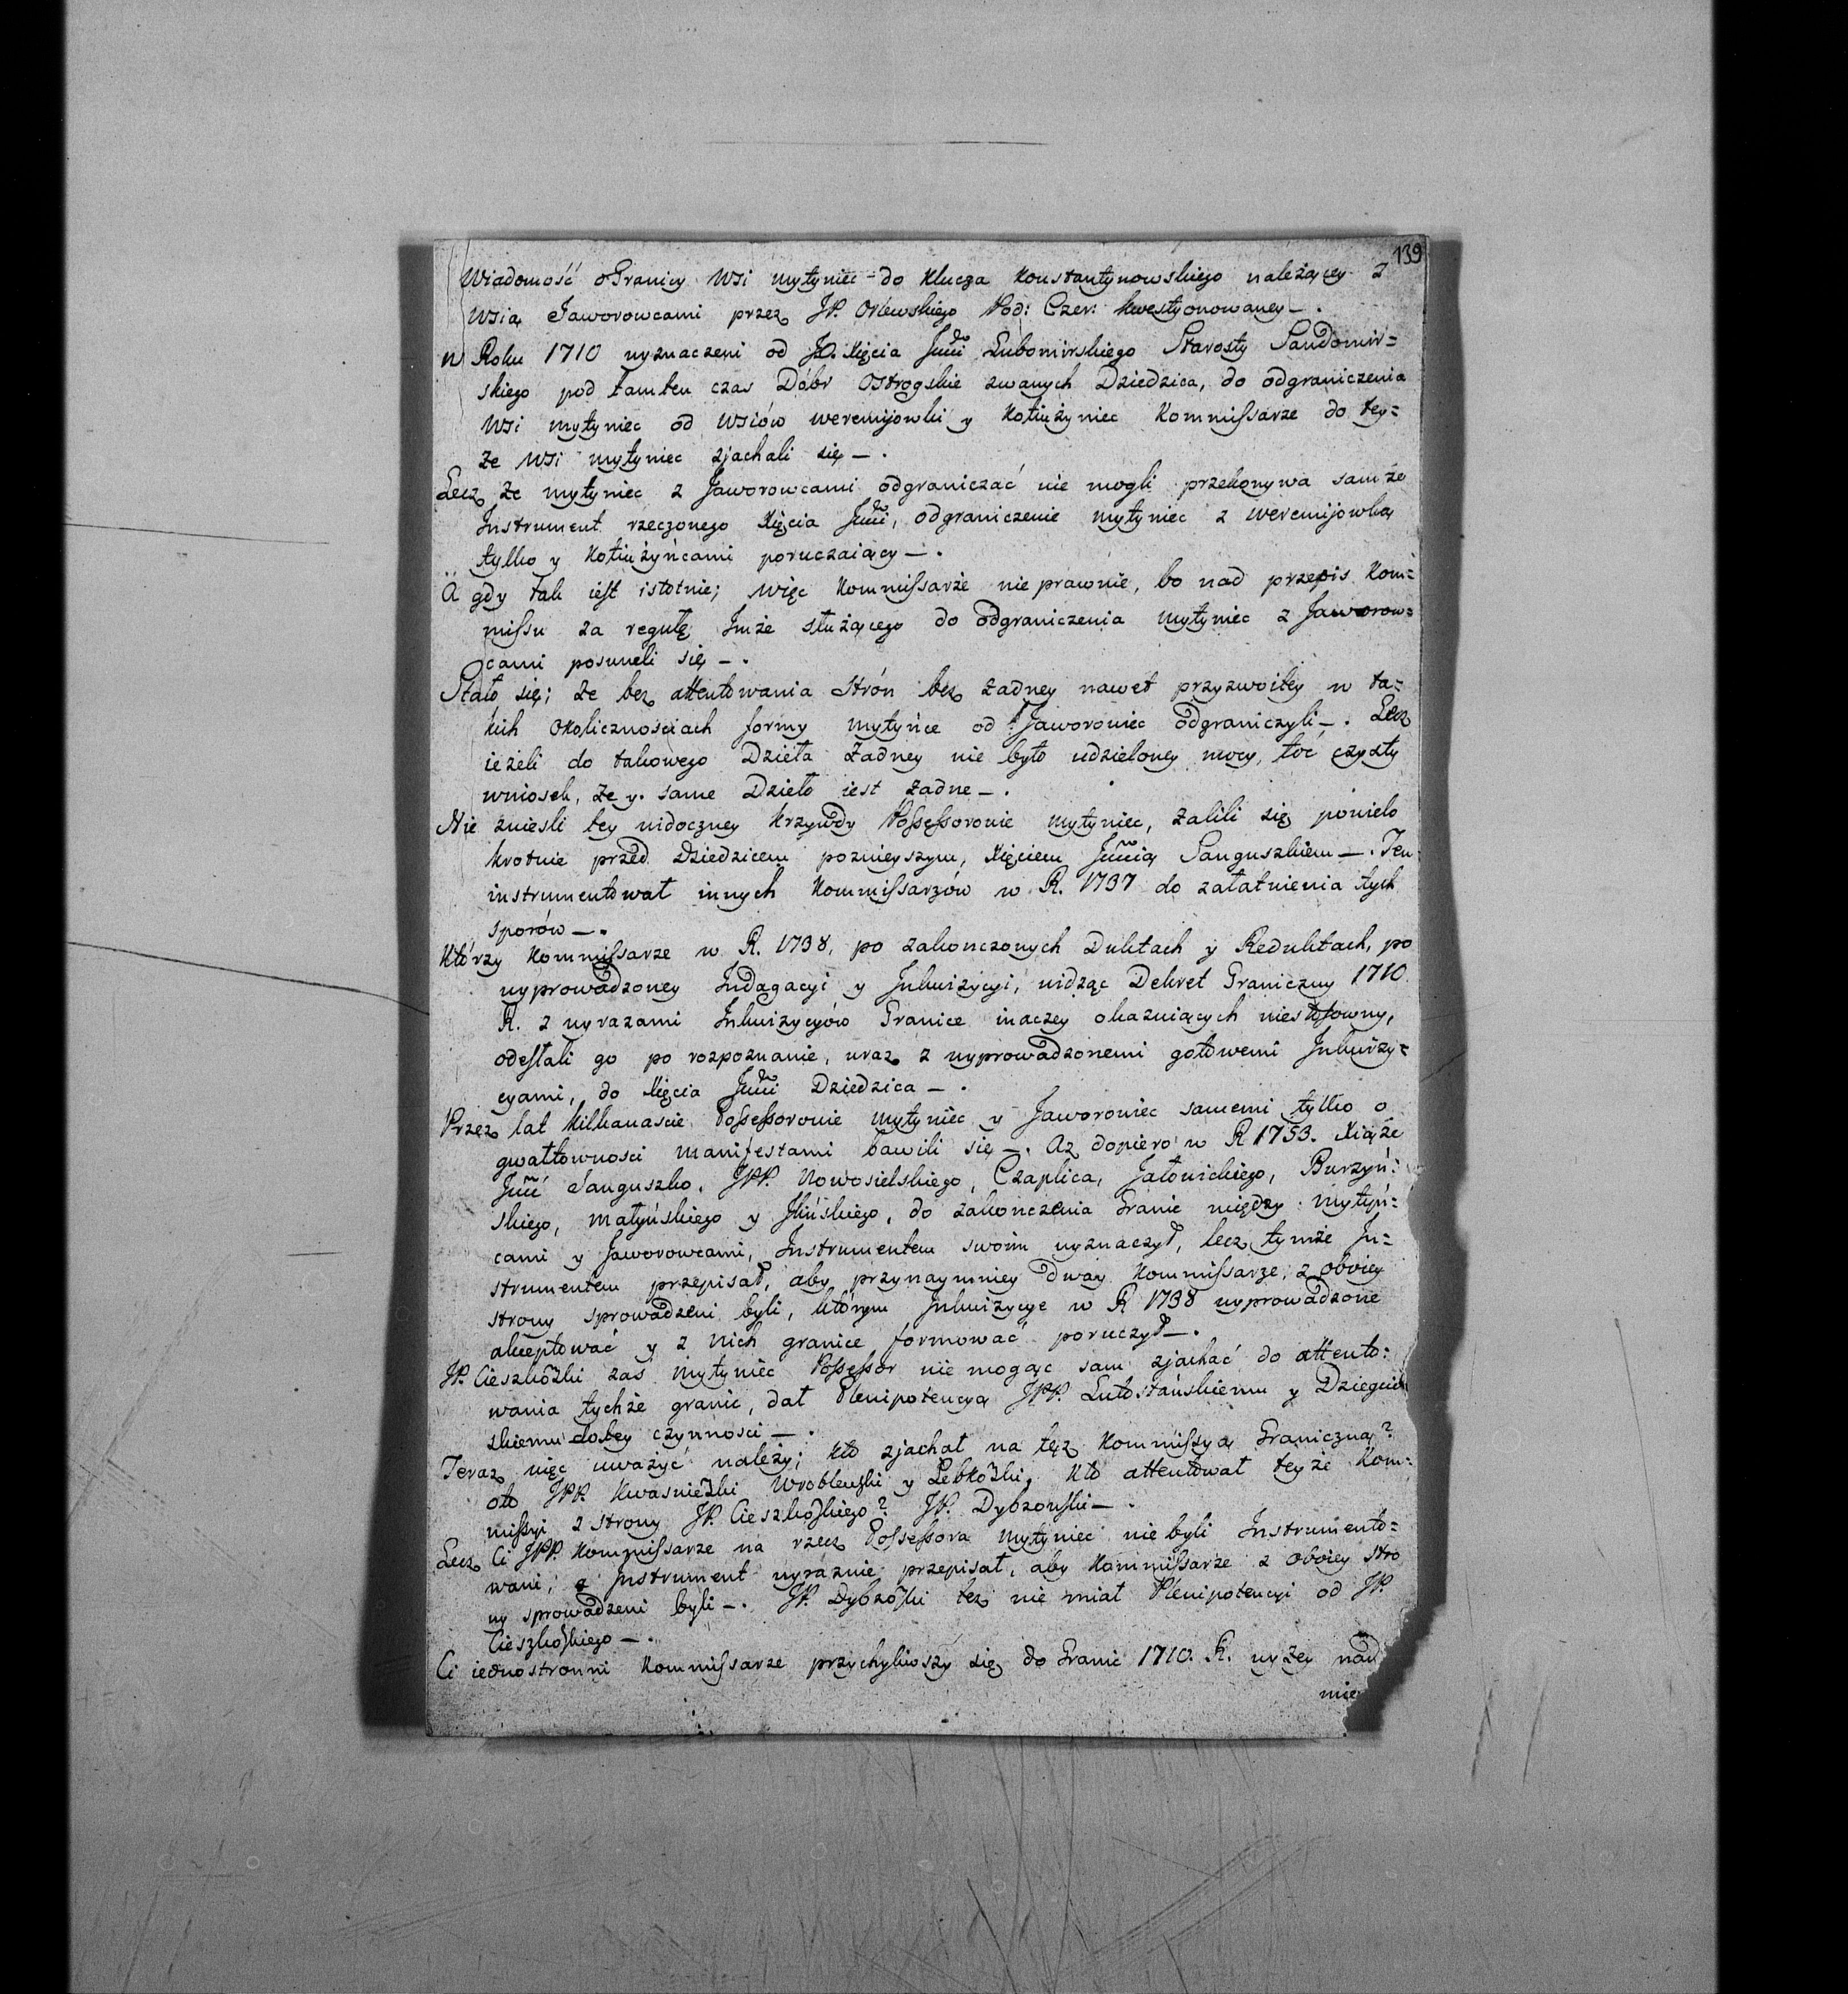 139
Wiadomość o Granicy Wsi Mytyniec do Klucza Konstantynowskiego należącey z
Wsią Jaworowcami przez JP. Orlewskiego Pod: Czer: kwestyonowaney —.
W Roku 1710 wyznaczeni od JO. Xięcia Jmci Lubomirskiego Starosty Sandomir=
skiego pod tamten czas Dóbr Ostrogskie zwanych Dziedzica, do odgraniczenia
Wsi Mytyniec od Wsiów Weremijowki y Kotiużyniec Kommissarze do tey=
że Wsi Mytyniec zjachali się —.
Lecz że Mytyniec z Jaworowcami odgraniczać nie mogli przekonywa samże
Instrument rzeczonego Xięcia Jmci, odgraniczenie Mytyniec z Weremijowką
tylko y Kotiużyńcami poruczaiący —.
A gdy tak iest istotnie; więc Kommissarże nie prawnie, bo nad przepis Kom=
missu za regułę Jmże służącego do odgraniczenia Mytyniec z Jaworow=
cami posuneli się —.
Stało się; że bez attentowania Strón bez żadney nawet przyzwoitey w ta=
kich okolicznościach formy Mytyńce od Jaworowiec odgraniczyli —. Lecz
ieżeli do takowego Dzieła Żadney nie było udzieloney mocy, toć czysty
wniosek, że y. same Dzieło iest żadne —.
Nie znieśli tey widoczney krzywdy Possessorowie Mytyniec, żalili się ponielo
krotnie przed Dziedzicem poznieyszym, Xięciem Jmcią Sanguszkiem —. Ten
instrumentował innych Kommissarzów w R. 1737 do załatnienia tych
sporów —.
Którzy Kommissarze w R. 1738, po zakonczonych Duktach y Reduktach, po
wyprowadzoney Indagacyi y Inkwizycyi, widząc Dekret Graniczny 1710
R. z wyrazami Inkwizycyów Granice inaczey okazuiących niestosowny,
odesłali go po rozpoznanie, wraz z wyprowadzonemi gotowemi Inkwizy=
cyami, do Xięcia Jmci Dziedzica —.
Przez lat kilkanascie Possessorowie Mytyniec y Jaworowiec samemi tylko o
gwałtownosci manifestami bawili się —. Aż dopiero w R 1753. Xiąże
Jmć Sanguszko. JPP. Nowosielskiego, Czaplica, Jałowickiego, Burzyń:
skiego, Małyńskiego y Ilińskiego, do zakonczenia Granic między Mytyń=
cami y Jaworowcami, Instrumentem swoim wyznaczył, lecz tymże In=
strumentem przepisał, aby przynaymniey dway Kommissarze, z oboiey
strony sprowadzeni byli, którym Inkwizycye w R 1738 wyprowadzone
akceptować y z nich granice formować poruczył —.
JP. Cieszkowski zaś Mytyniec Possessor nie mogąc sam zjachać do attento:
wania tychże granic, dał Plenipotencyą JPP. Lutostańskiemu y Dziegciow
skiemu do tey czynnosci —.
Teraz więc uważyć należy; kto zjachał na tęż Kommissyą Graniczną?
oto JPP. Kwasniewski Wroblewski y Lebkowski. Kto attentował teyże Kom:
missyi z strony JP. Cieszkowskiego? JP. Dybzowski —.
Lecz Ci JPP. Kommissarze na rzecz Possessora Mytyniec nie byli Instrumento=
wani, a Instrument wyraznie przepisał, aby Kommissarze z oboiey stro
ny sprowadzeni byli —. JP. Dybzowski też nie miał Plenipotencyi od JP.
Cieszkowskiego —.
Ci iednostronni Kommissarze przychyliwszy się do Granic 1710. R. wyżey nad
mie